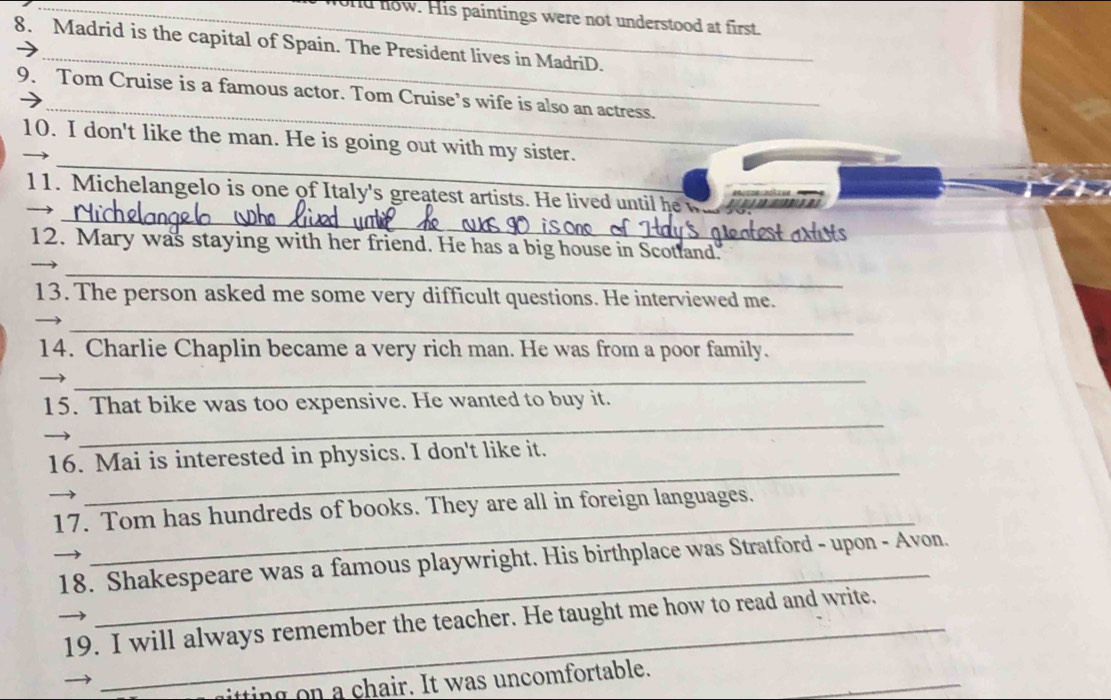 now. His paintings were not understood at first.
8. Madrid is the capital of Spain. The President lives in MadriD.
→
9. Tom Cruise is a famous actor. Tom Cruise's wife is also an actress.
→
10. I don't like the man. He is going out with my sister.
→
11. Michelangelo is one of Italy's greatest artists. He lived until he
→ Michelangelo who lived until he was 90 is one of Italy's greatest artists
12. Mary was staying with her friend. He has a big house in Scotland.
→
13. The person asked me some very difficult questions. He interviewed me.
→
14. Charlie Chaplin became a very rich man. He was from a poor family.
→
15. That bike was too expensive. He wanted to buy it.
→
16. Mai is interested in physics. I don't like it.
→
17. Tom has hundreds of books. They are all in foreign languages.
→
18. Shakespeare was a famous playwright. His birthplace was Stratford - upon - Avon.
→
19. I will always remember the teacher. He taught me how to read and write.
→
on a chair. It was uncomfortable.